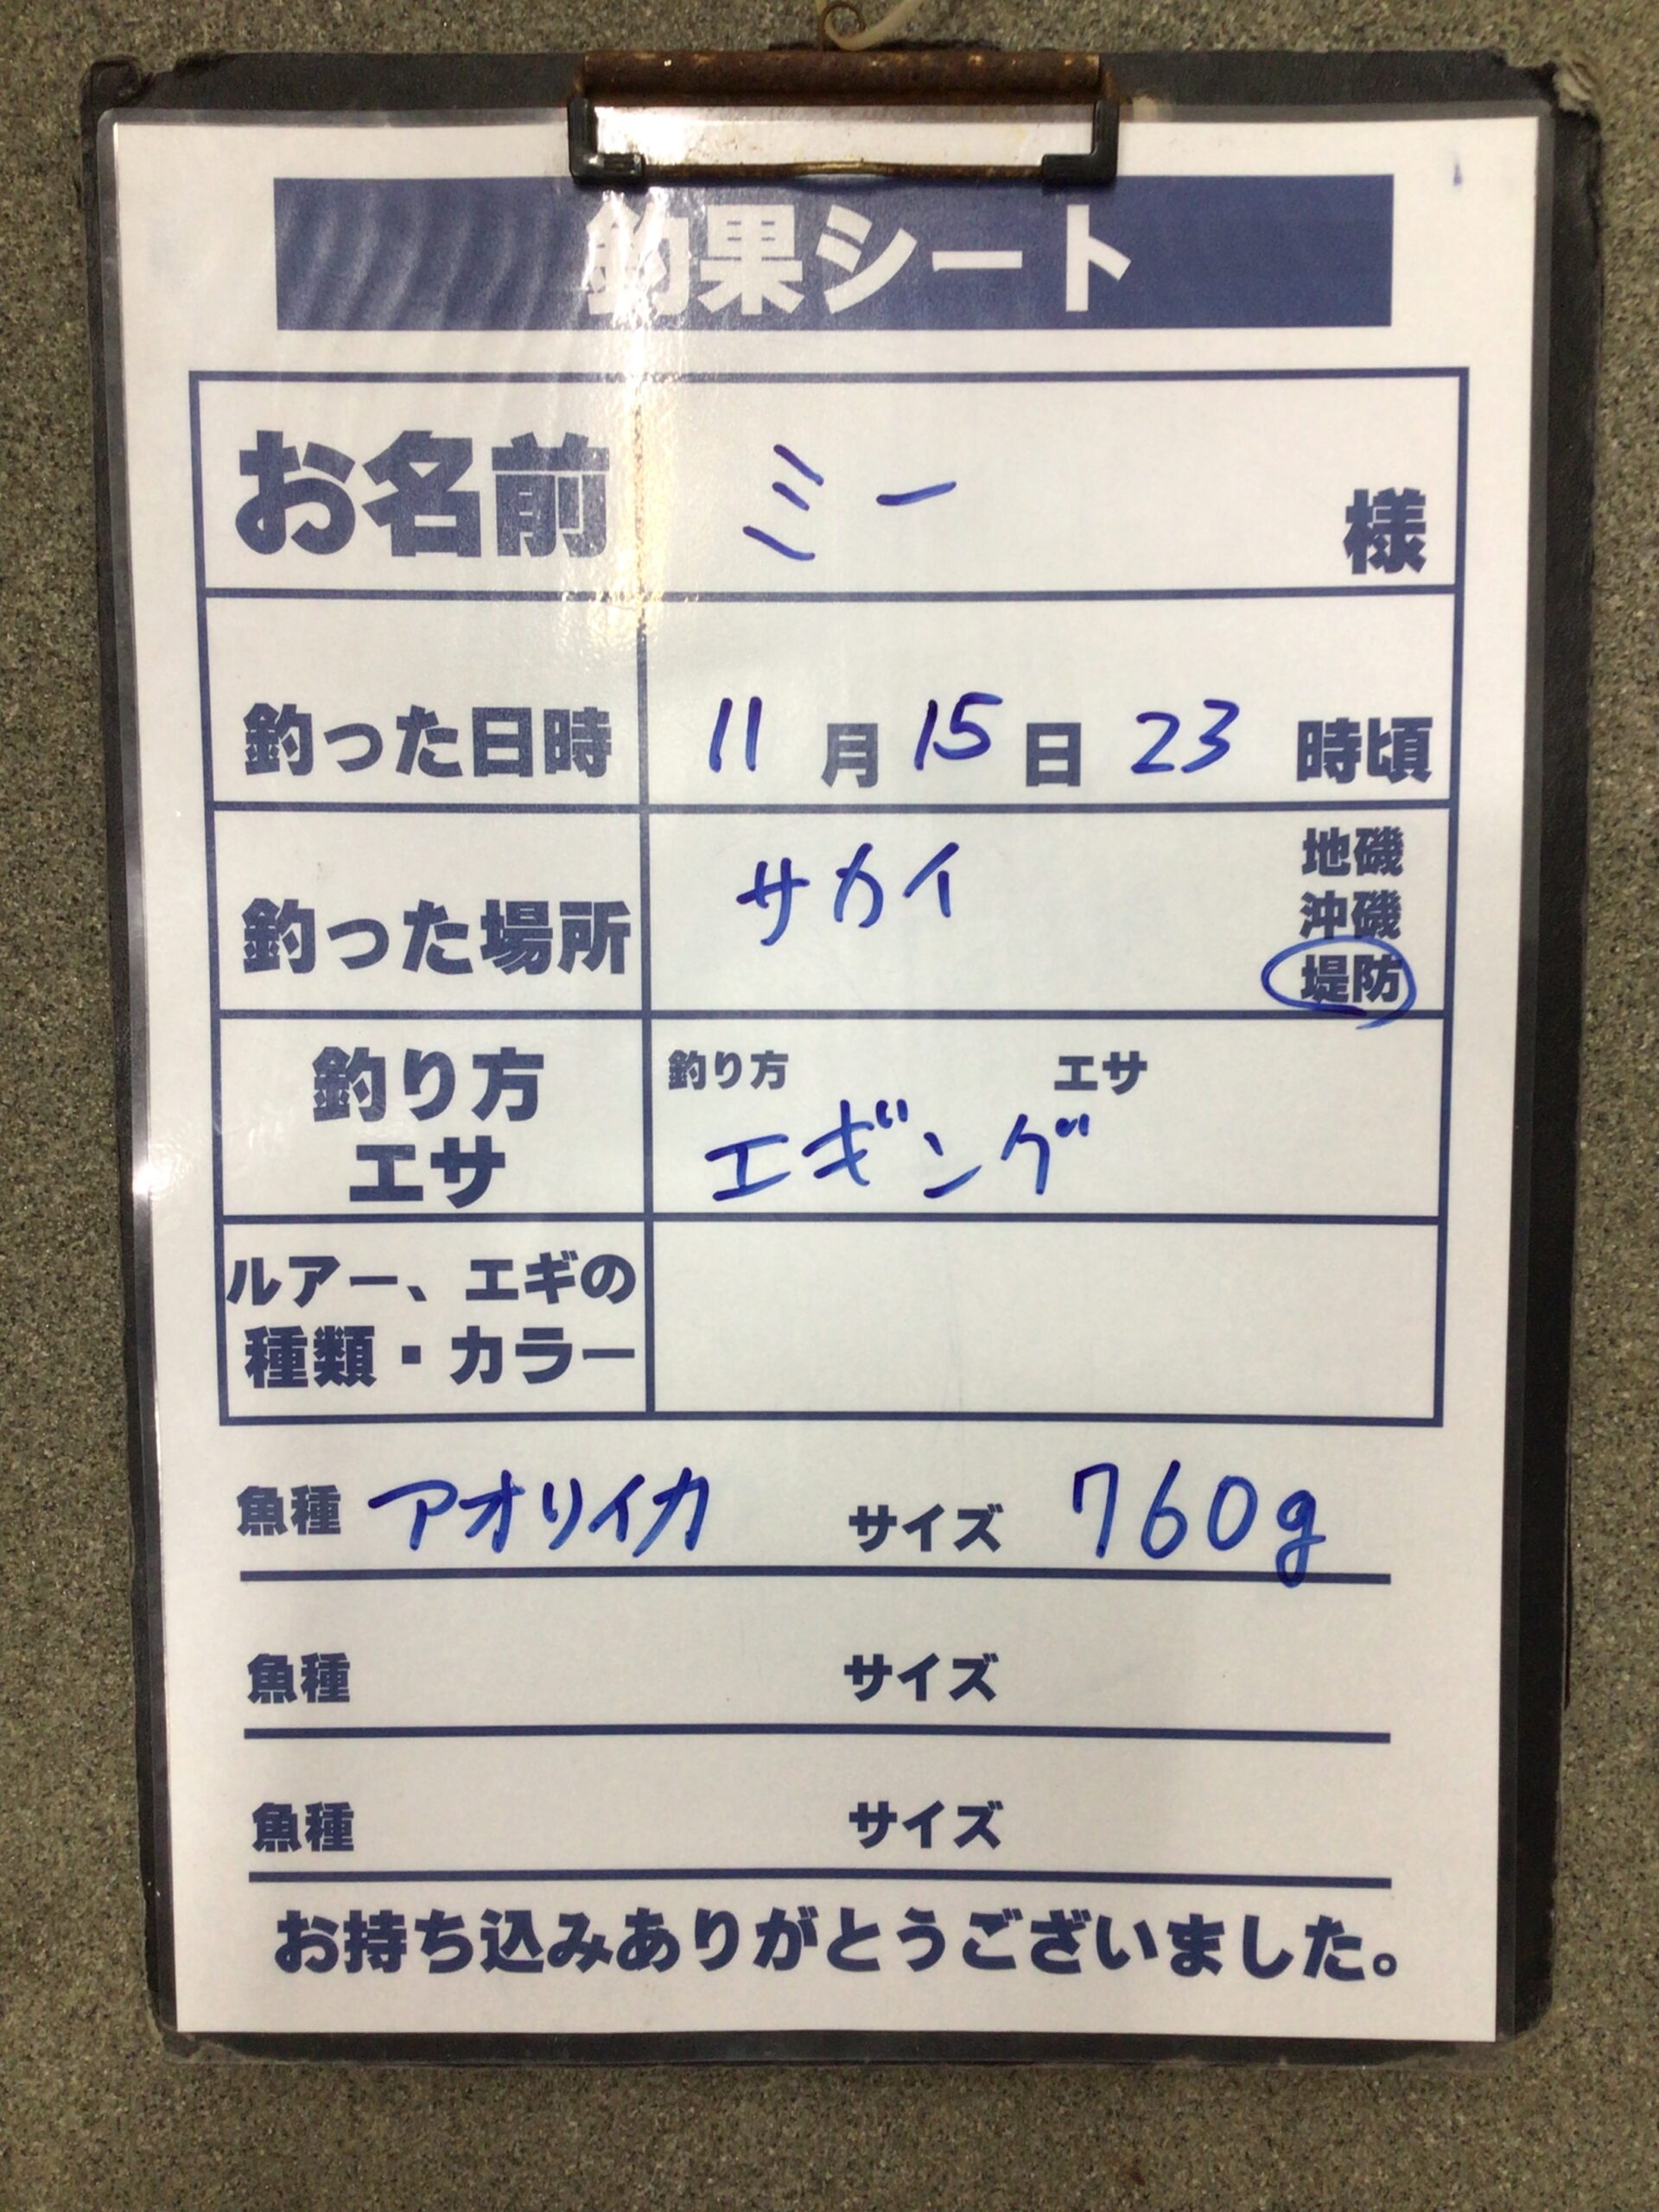 釣果シート
お名前 ミー 様
釣った日時 11月15日23時頃
釣った場所 サカイ 地磯
沖磯
堤防
釣り方 釣り方 エサ
エサ エギング
ルアー、エギの
種類・カラー
魚種 アオリイカ サイズ 760g
魚種 サイズ
魚種 サイズ
お持ち込みありがとうございました。